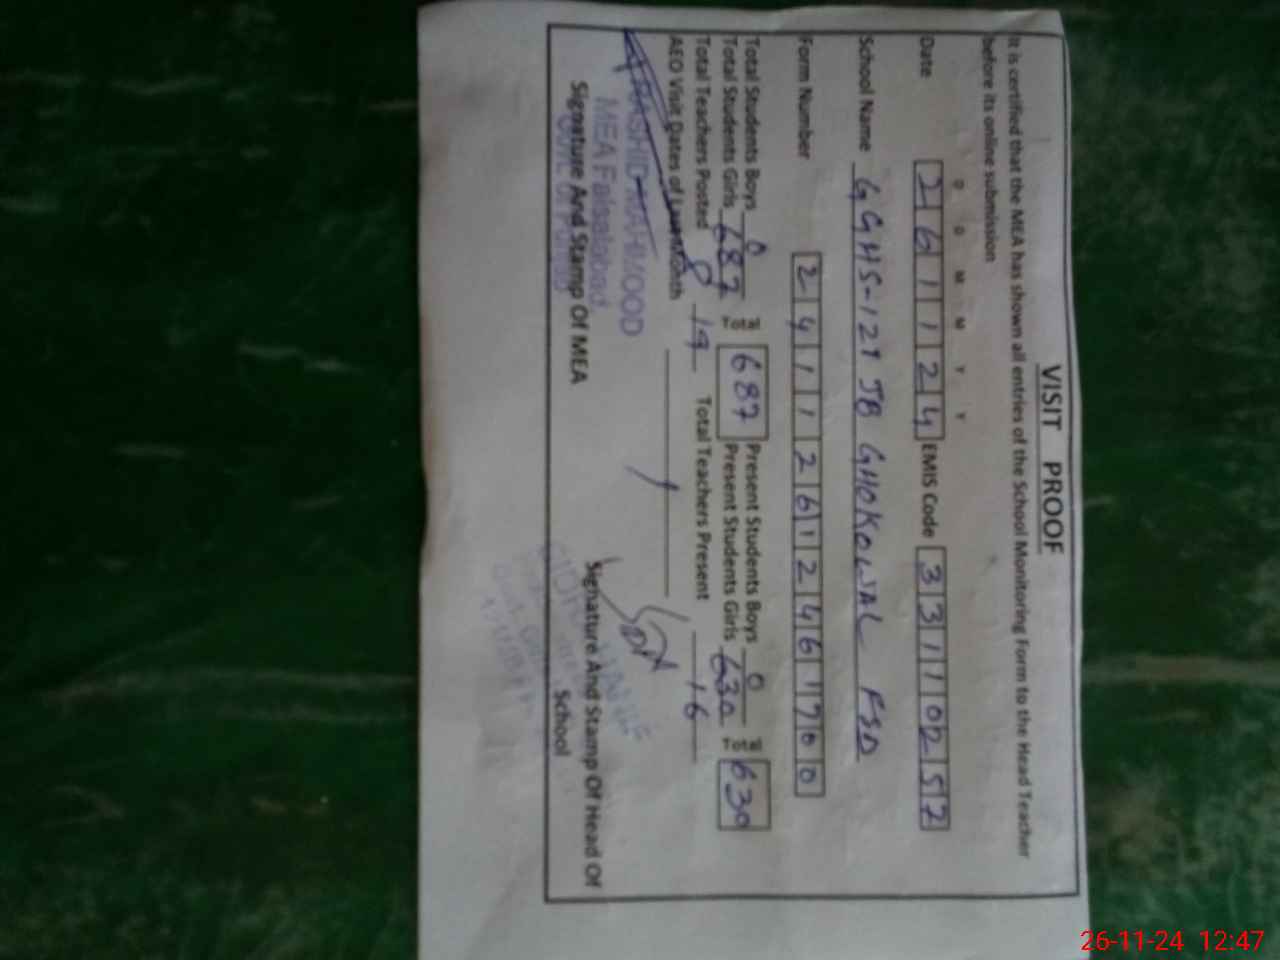 VISIT PROOF
It is certified that the MEA has shown all entries of the School Monitoring Form to the Head Teacher
before its online submission
D D M M Y Y
Date 261124 EMIS Code 33110252
School Name GGHS-127 JB GHOKOWAL FSD
Form Number 24112612461700
Total Students Boys 0 Present Students Boys 0
Total Students Girls 687 687 Present Students Girls 630 630
Total Teachers Posted 19 Total Teachers Present 16
AEO Visit Dates of Last Month
RASHID MAHMOOD
MEA Faisalabad
Signature And Stamp Of MEA
Signature And Stamp Of Head Of
School
26-11-24 12:47